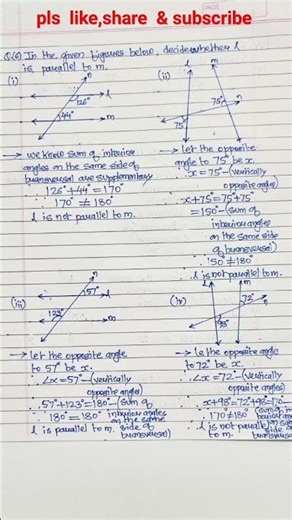 pls like,share & subscribe
Q.(6) In the given figures below, decide whether l
is parallel to m.
(i)
n
126°
l
44°
m
→ we know sum of interior
angles on the same side of
transversal are supplementary
∴ 126°+44°=170°
∴ 170° ≠ 180°
∴ l is not parallel to m.
(ii)
l
m
75°
n
75°
→ let the opposite
angle to 75° be x.
∴ x=75°-(vertically
opposite angles)
x+75°=75°+75°
=150°-(sum of
interior angles
on the same side
of transversal)
∴ 150°≠180°
∴ l is not parallel to m.
(iii)
n
57°
l
123°
m
→ let the opposite angle
to 57° be x.
∴ ∠x=57°-(vertically
opposite angle)
∴ 57°+123°=180°-(sum of
180°=180° interior angles
on the same
l is parallel to m. side of
transversal)
(iv)
l
m
72°
n
98°
→ let the opposite angle
to 72° be x.
∴ ∠x=72°-(vertically
opposite angles)
∴ x+98°=72°+98°=170°
∴ 170≠180° (sum of in
terior angles
on same
∴ l is not parallel side of
to m. transversal)